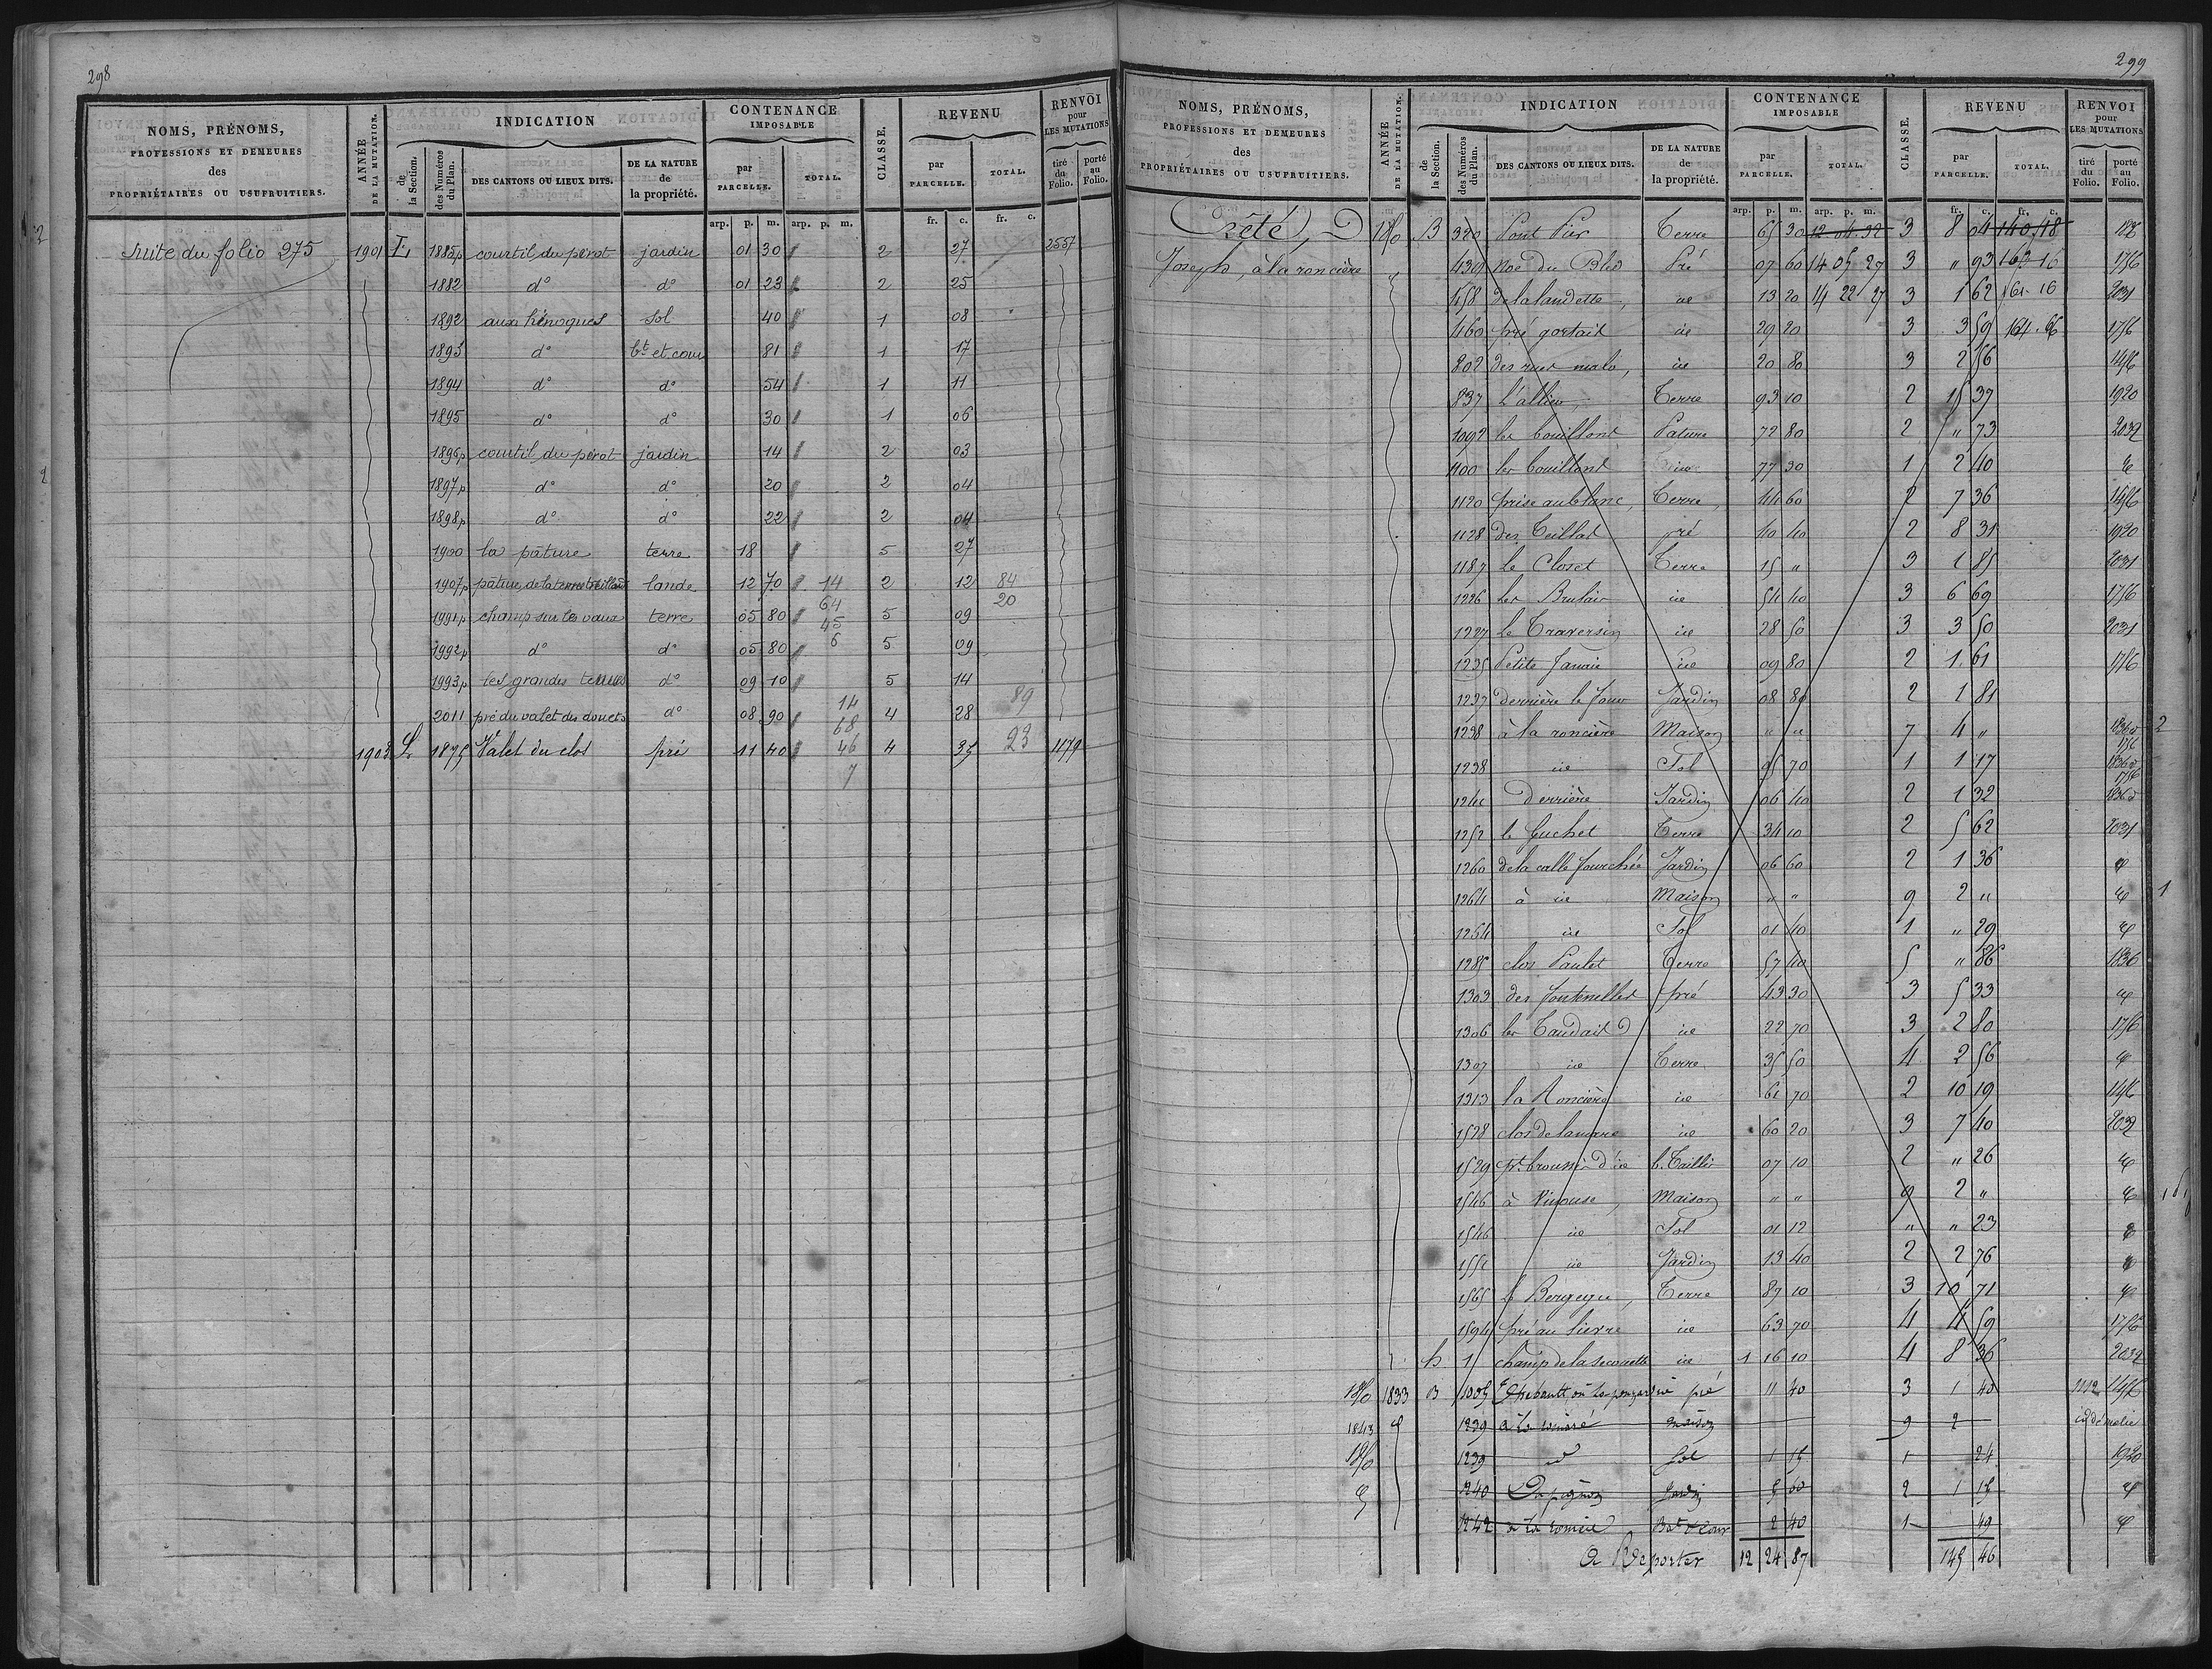 298
NOMS, PRÉNOMS, PROFESSIONS ET DEMEURES des PROPRIÉTAIRES OU USUFRUITIERS.
ANNÉE DE LA MUTATION.
INDICATION
de la Section.
des Numéros du Plan.
DES CANTONS OU LIEUX DITS.
DE LA NATURE de la propriété.
CONTENANCE IMPOSABLE
par PARCELLE.
TOTAL.
CLASSE.
REVENU
par PARCELLE.
TOTAL.
RENVOI pour LES MUTATIONS
tiré du Folio.
porté au Folio.
arp. p. m. arp. p. m. fr. c. fr. c.
Suite du folio 275 1901 E 1885p courtil du perot jardin 01 30 2 27 2557
1882 d° d° 01 23 2 25
1892 aux hénoques sol 40 1 08
1893 d° bt et cour 81 1 17
1894 d° d° 54 1 11
1895 d° d° 30 1 06
1896p courtil du perot jardin 14 2 03
1897p d° d° 20 2 04
1898p d° d° 22 2 04
1900 la pâture terre 18 5 27
1907p pâture de la lande 12 70 14 2 12 84
1991p champ sur les vaux terre 05 80 64 45 5 09 20
1992p d° d° 05 80 6 5 09
1993p les grandes d° 09 10 5 14
2011 pré du valet des douets d° 08 90 14 68 4 28 89
1903 L 1875 Valet du clos pré 11 40 46 7 4 35 23 1179
299
NOMS, PRÉNOMS, PROFESSIONS ET DEMEURES des PROPRIÉTAIRES OU USUFRUITIERS.
ANNÉE DE LA MUTATION.
INDICATION
de la Section.
des Numéros du Plan.
DES CANTONS OU LIEUX DITS.
DE LA NATURE de la propriété.
CONTENANCE IMPOSABLE
par PARCELLE.
TOTAL.
CLASSE.
REVENU
par PARCELLE.
TOTAL.
RENVOI pour LES MUTATIONS
tiré du Folio.
porté au Folio.
arp. p. m. arp. p. m. fr. c. fr. c.
Crété, B 320 Pont Pir Terre 65 30 12 04 32 3 8 04 140 18
Joseph, à la roncière 439 Noë du Bled Pré 07 60 14 05 27 3 " 93 163 16 1756
458 de la landette, ie 13 20 14 22 27 3 1 62 161 16 2031
460 pré gortait ie 29 20 3 3 59 164 66 1756
802 des rues malo, ie 20 80 3 2 56 1456
837 L'allieu, Terre 93 10 2 15 37 1920
1092 les bouillons Pature 72 80 2 " 73 2032
1100 les bouillons 77 30 1 2 40
1120 prise aublanc, Terre 44 60 2 7 36 1456
1128 des Teillas pré 40 40 2 8 31 1920
1187 Le Closet Terre 15 " 3 1 85 2031
1226 Les Brulais ie 54 40 3 6 69 1756
1227 le Traversin ie 28 50 3 3 50 2031
1235 Petite Janaie ie 09 80 2 1 61 1756
1237 derrière le four Jardin 08 80 2 1 81
1238 à la roncière Maison " " 7 4 " 1756
1238 ie Sol 05 70 1 1 17 1756
1244 Derrière Jardin 06 40 2 1 32
1252 le Guchet Terre 34 10 2 5 62 2031
1260 de la calle fourchée Jardin 06 60 2 1 36
1264 à ie Maison " " 9 2 "
1264 ie Sol 01 40 1 " 29
1285 clos Paulet Terre 57 40 5 " 86 1836
1303 des fontenelles pré 43 30 3 5 33
1306 les Taudais ie 22 70 3 2 80 1756
1307 ie Terre 35 50 4 2 56
1313 la Roncière ie 61 70 2 10 19 1456
1528 clos de lamare ie 60 20 3 7 40 2032
1529 pt. brousse d'ie b. Taillis 07 10 2 " 26
1546 à Vinouse, Maison " " 9 2 "
1546 ie Sol 01 12 " " 23
1551 ie Jardin 13 40 2 2 76
1565 le Bergeyre, Terre 87 10 3 10 71
1594 pré au lierre ie 63 70 4 4 59 1756
h 1 champ de la secouette ie 1 16 10 4 8 36 2032
1850 1833 B 1005 pré 11 40 3 1 40 1112 1456
1843 1239 à la maison 9 2 démolie
1850 1239 Sol 1 15 1 24 1920
1240 Le pignon Jardin 5 60 2 1 15
1242 à la Bat et Cour 2 40 1 49
A Reporter 12 24 87 145 46